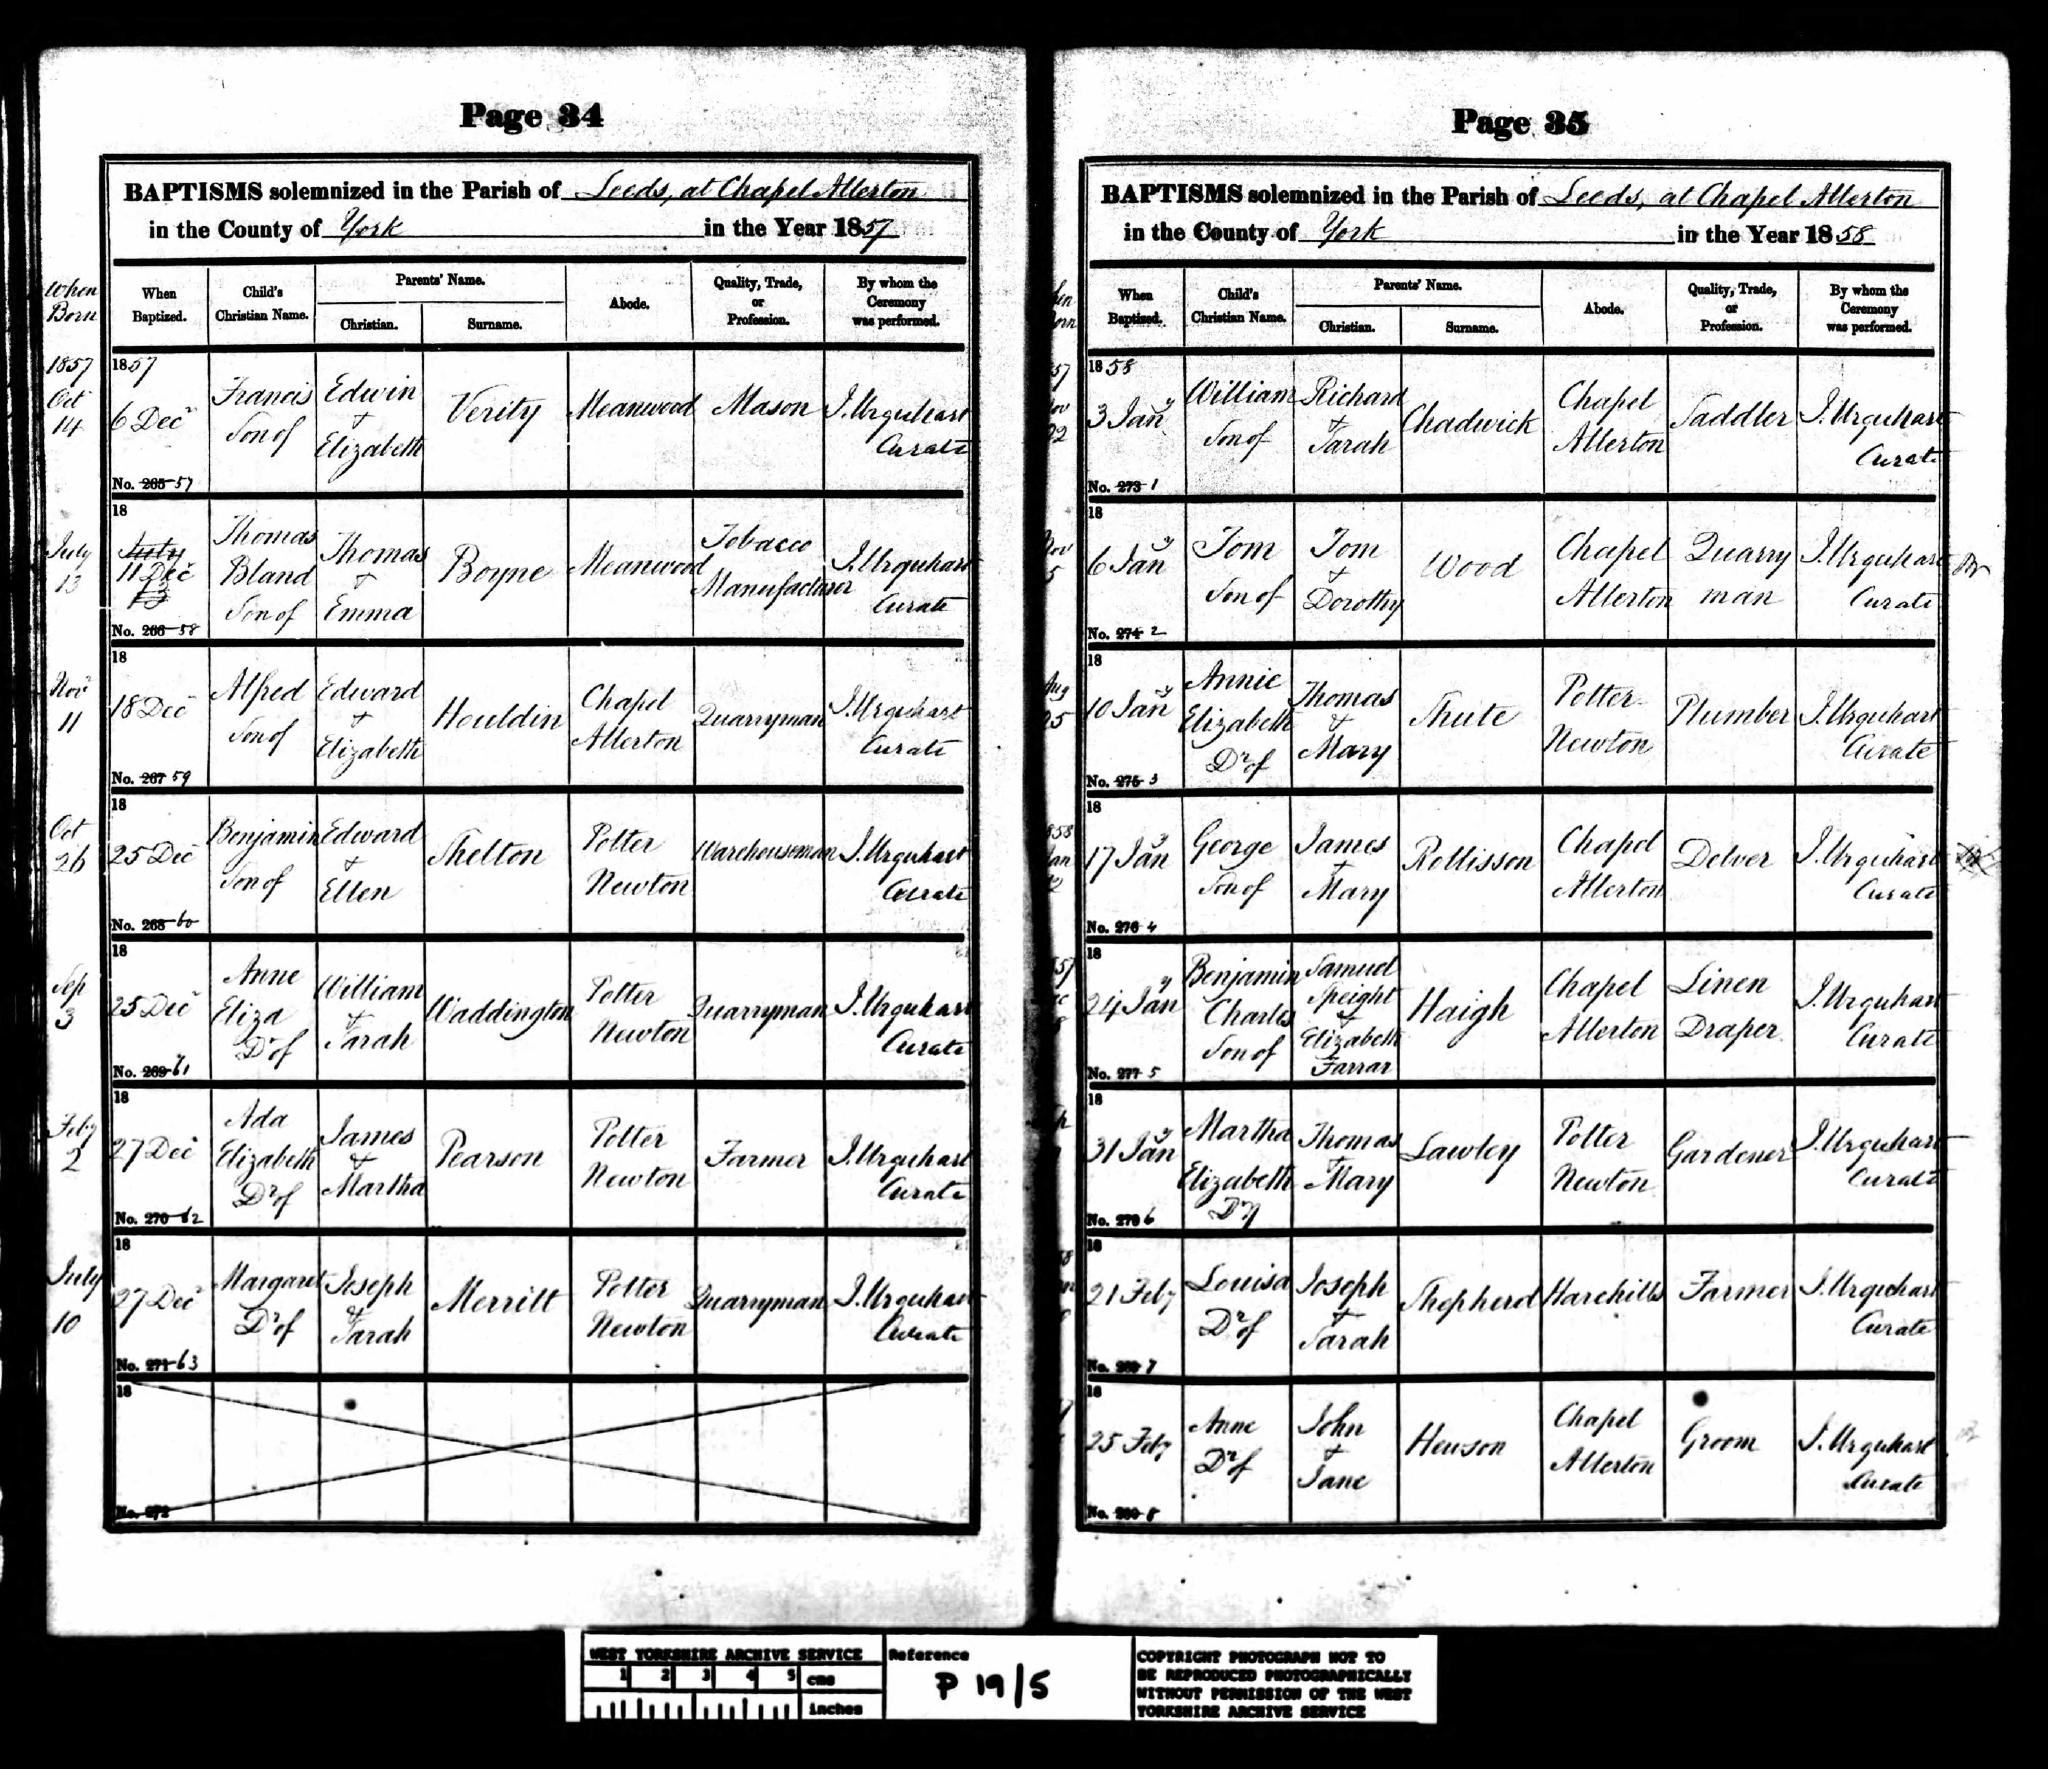 Page 34
BAPTISMS solemnized in the Parish of Leeds, at Chapel Allerton
in the County of York in the Year 1857
When Born
When Baptized.
Child's Christian Name.
Parents' Name.
Christian.
Surname.
Abode.
Quality, Trade, or Profession.
By whom the Ceremony was performed.
1857 Oct 14
1857 6 Dec
Francis Son of
Edwin & Elizabeth
Verity
Meanwood
Mason
J. Urquhart Curate
No. 265 57
July 13
18 July 11 Dec 13
Thomas Bland Son of
Thomas & Emma
Boyne
Meanwood
Tobacco Manufacturer
J. Urquhart Curate
No. 266 58
Nov 11
18 18 Dec
Alfred Son of
Edward & Elizabeth
Houldin
Chapel Allerton
Quarryman
J. Urquhart Curate
No. 267 59
Oct 26
18 25 Dec
Benjamin Son of
Edward & Ellen
Shelton
Potter Newton
Warehouseman
J. Urquhart Curate
No. 268 60
Sep 3
18 25 Dec
Anne Eliza Dr of
William & Sarah
Waddington
Potter Newton
Quarryman
J. Urquhart Curate
No. 269 61
Feby 2
18 27 Dec
Ada Elizabeth Dr of
James & Martha
Pearson
Potter Newton
Farmer
J. Urquhart Curate
No. 270 62
July 10
18 27 Dec
Margaret Dr of
Joseph & Sarah
Merritt
Potter Newton
Quarryman
J. Urquhart Curate
No. 271 63
18
No. 272
Page 35
BAPTISMS solemnized in the Parish of Leeds, at Chapel Allerton
in the County of York in the Year 1858
When Baptized.
Child's Christian Name.
Parents' Name.
Christian.
Surname.
Abode.
Quality, Trade, or Profession.
By whom the Ceremony was performed.
1858 3 Jany
William Son of
Richard & Sarah
Chadwick
Chapel Allerton
Saddler
J. Urquhart Curate
No. 273 1
18 6 Jany
Tom Son of
Tom & Dorothy
Wood
Chapel Allerton
Quarry man
J. Urquhart Curate
No. 274 2
18 10 Jany
Annie Elizabeth Dr of
Thomas & Mary
Shute
Potter Newton
Plumber
J. Urquhart Curate
No. 275 3
18 17 Jany
George Son of
James & Mary
Rollisson
Chapel Allerton
Delver
J. Urquhart Curate
No. 276 4
18 24 Jany
Benjamin Charles Son of
Samuel Speight & Elizabeth Farrar
Haigh
Chapel Allerton
Linen Draper
J. Urquhart Curate
No. 277 5
18 31 Jany
Martha Elizabeth Dr of
Thomas & Mary
Lawley
Potter Newton
Gardener
J. Urquhart Curate
No. 278 6
18 21 Feby
Louisa Dr of
Joseph & Sarah
Shepherd
Harehills
Farmer
J. Urquhart Curate
No. 279 7
18 25 Feby
Anne Dr of
John & Jane
Hewson
Chapel Allerton
Groom
J. Urquhart Curate
No. 280 8
WEST YORKSHIRE ARCHIVE SERVICE
1 2 3 4 5 cms
inches
Reference
P 19/5
COPYRIGHT PHOTOGRAPH NOT TO
BE REPRODUCED PHOTOGRAPHICALLY
WITHOUT PERMISSION OF THE WEST
YORKSHIRE ARCHIVE SERVICE